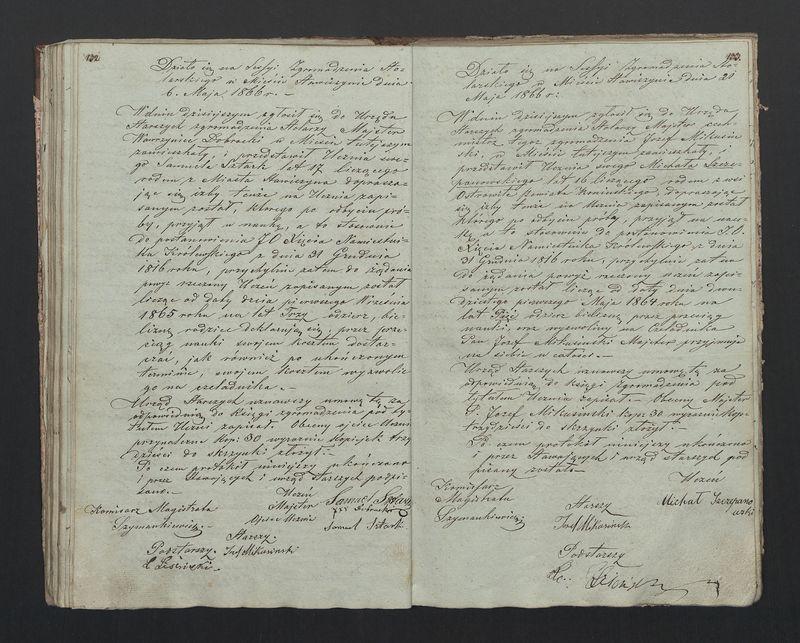 132.
Działo się na Sessyi Zgromadzenia Sto-
larskiego w Mieście Stawiszynie dnia
6. Maja 1866 r. –
W dniu dzisiejszym zgłosił się do Urzędu
Starszych zgromadzenia Stolarzy Majster
Wawrzyniec Dobracki w Mieście tutejszym
zamieszkały, i przedstawił Ucznia swe-
go Samuela Sztark lat 17 liczącego
rodem z Miasta Stawiszyna doprasza-
jąc się iżby tenże na Ucznia zapi-
sanym został, którego po odbyciu pró-
by, przyjął w naukę, a to stosownie
do postanowienia JO Xięcia Namiestni-
ka Królewskiego z dnia 31 Grudnia
1816 roku, przychylnie zatem do żądania
powyż rzeczony Uczeń zapisanym został
licząc od daty dnia pierwszego Września
1865 roku na lat Trzy odzież, bie-
liznę rodzice deklarują się, przez prze-
ciąg nauki swojem kosztem dostar-
czać, jak również po ukończonym
terminie, swojem kosztem wyzwolić
go na czeladnika. –
Urząd Starszych uznawszy umowę tę za
odpowiednią do Księgi zgromadzenia pod ty-
tułem Uczni zapisał. Obecny ojciec Ucznia
przynależne kop: 30 wyraźnie Kopiejek trzy
dzieści do skrzynki złożył. –
Po czem protokół niniejszy ukończono
i przez Stawających i urząd starszych podpi-
sano. –
Komisarz Magistratu
Szymankiewicz
Uczeń
Majster
Ojciec Ucznia
Samuel Sztark
xxx Dobracki
Samuel Sztark
Starszy
Józef Mikusiński
Podstarszy
133.
Działo się na Sessyi Zgromadzenia Sto-
larskiego w Mieście Stawiszynie dnia 21
Maja 1866 r:
W dniu dzisiejszym zgłosił się do Urzędu
Starszych zgromadzenia Stolarzy Majster cech-
mistrz tegoż zgromadzenia Józef Mikusiń-
ski, w Mieście tutejszym zamieszkały, i
przedstawił Ucznia swego Michała Szcze-
panowskiego lat 16 liczącego rodem z wsi
Powiatu Konińskiego, dopraszając
się iżby tenże na Ucznia zapisanym został
którego po odbyciu próby, przyjął na nau-
kę a to stosownie do postanowienia J.O.
Xięcia Namiestnika Królewskiego z dnia
31 Grudnia 1816 roku, przychylnie zatem
do żądania powyż rzeczony uczeń zapi-
sanym został licząc od Daty dnia dwu-
dziestego pierwszego Maja 1864 roku na
lat odzież bieliznę przez przeciąg
nauki oraz wyzwoliny na Czeladnika
Pan Józef Mikusiński Majster przyjmuje
na siebie w całości. –
Urząd Starszych uznawszy umowę tę za
odpowiednią do Księgi Zgromadzenia pod
tytułem Ucznia zapisał – Obecny Majster
P. Józef Mikusiński kop: 30 wyraźnie Kop:
trzydzieści do skrzynki złożył –
Po czem protokół niniejszy ukończono
i przez Stawających i urząd starszych pod
pisany został –
Komissarz
Magistratu
Szymankiewicz
Uczeń
Michał Szczepano
wski
Starszy
Józef Mikusiński
Podstarszy